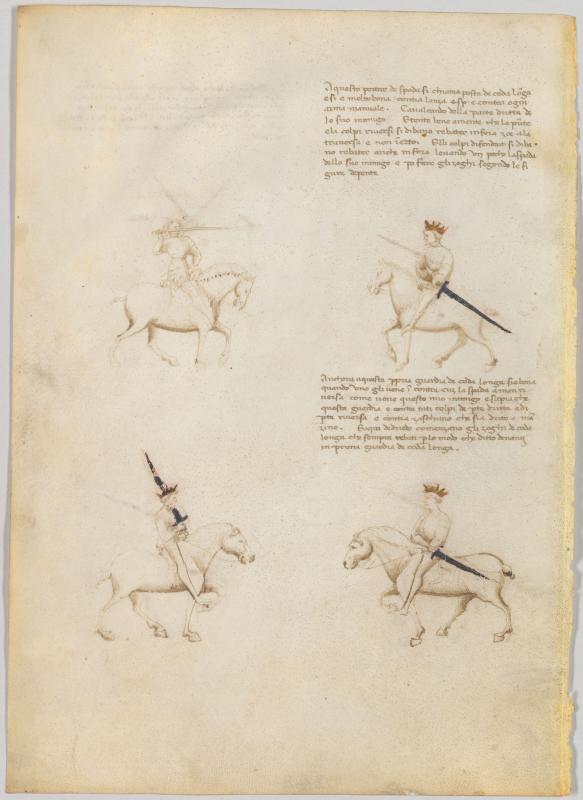 Aquesto portar de spada si chiama posta de coda longa
e si e molto bona contra lanza e spada e contra ogni
arma manuale. Cavalcando della parte dritta de
lo suo inimigo. E tente bene a mente che la punte
e li colpi riversi si dibano rebatter in fora zoe a la
traversa e non in erto. E lli colpi difendenti si diba-
no rebater anche in fora levando un pocho la spada
dello suo inimigo e po fare gli zoghi segondo le fi
gure depente.
Anchora aquesta propria guardia de coda longa sie bona
quando uno gli vene in contra cum la spada a man ri
versa come vene questo mio inimigo e sapia che
questa guardia e contra tuti colpi de parte dritta e di
parte riversa e contra zaschuno che sia drito o man
zino. E aqui dedredo comenzano gli zoghi de coda
longa che sempre rebati per lo modo che ditto denanci
in prima guardia de coda longa.